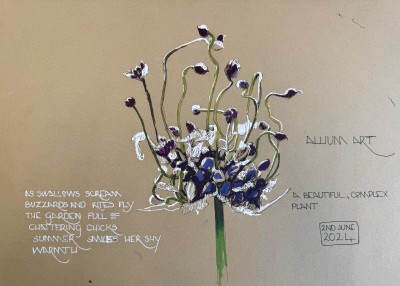 ALLIUM ART
AS SWALLOWS SCREAM
BUZZARDS AND KITES FLY
THE GARDEN FULL OF
CHATTERING CHICKS
SUMMER SMILES HER SHY
WARMTH
A BEAUTIFUL, COMPLEX
PLANT
2ND JUNE
2024